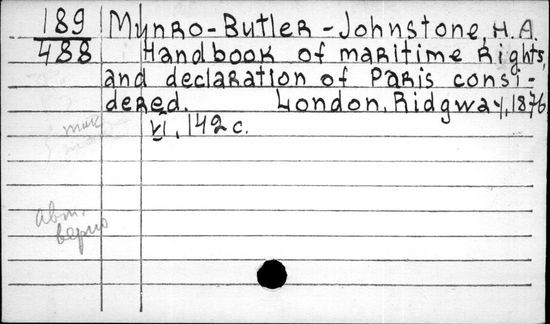 189 Munro-Butler-Johnstone, H.A.
488 Handbook of maritime rights,
and declaration of Paris consi-
dered. London, Ridgway, 1876.
VI, 142 c.
авт.
верно